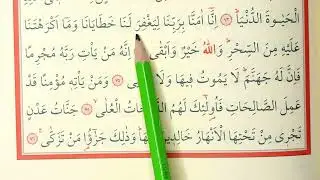 الْحَيٰوةَ الدُّنْيَاۜ ﴿٧٢﴾ اِنَّٓا اٰمَنَّا بِرَبِّنَا لِيَغْفِرَ لَنَا خَطَايَانَا وَمَٓا اَكْرَهْتَنَا
عَلَيْهِ مِنَ السِّحْرِۜ وَاللّٰهُ خَيْرٌ وَاَبْقٰى اِنَّهُ مَنْ يَأْتِ رَبَّهُ مُجْرِمًا
فَاِنَّ لَهُ جَهَنَّمَۜ لَا يَمُوتُ فِيهَا وَلَا وَمَنْ يَأْتِهِ مُؤْمِنًا قَدْ
عَمِلَ الصَّالِحَاتِ فَاُولٰٓئِكَ لَهُمُ الدَّرَجَاتُ الْعُلٰىۙ ﴿٧٥﴾ جَنَّاتُ عَدْنٍ
تَجْرِى مِنْ تَحْتِهَا الْاَنْهَارُ خَالِدِينَ فِيهَاۜ وَذٰلِكَ جَزٰٓؤُا مَنْ تَزَكّٰى۟ ﴿٧٦﴾